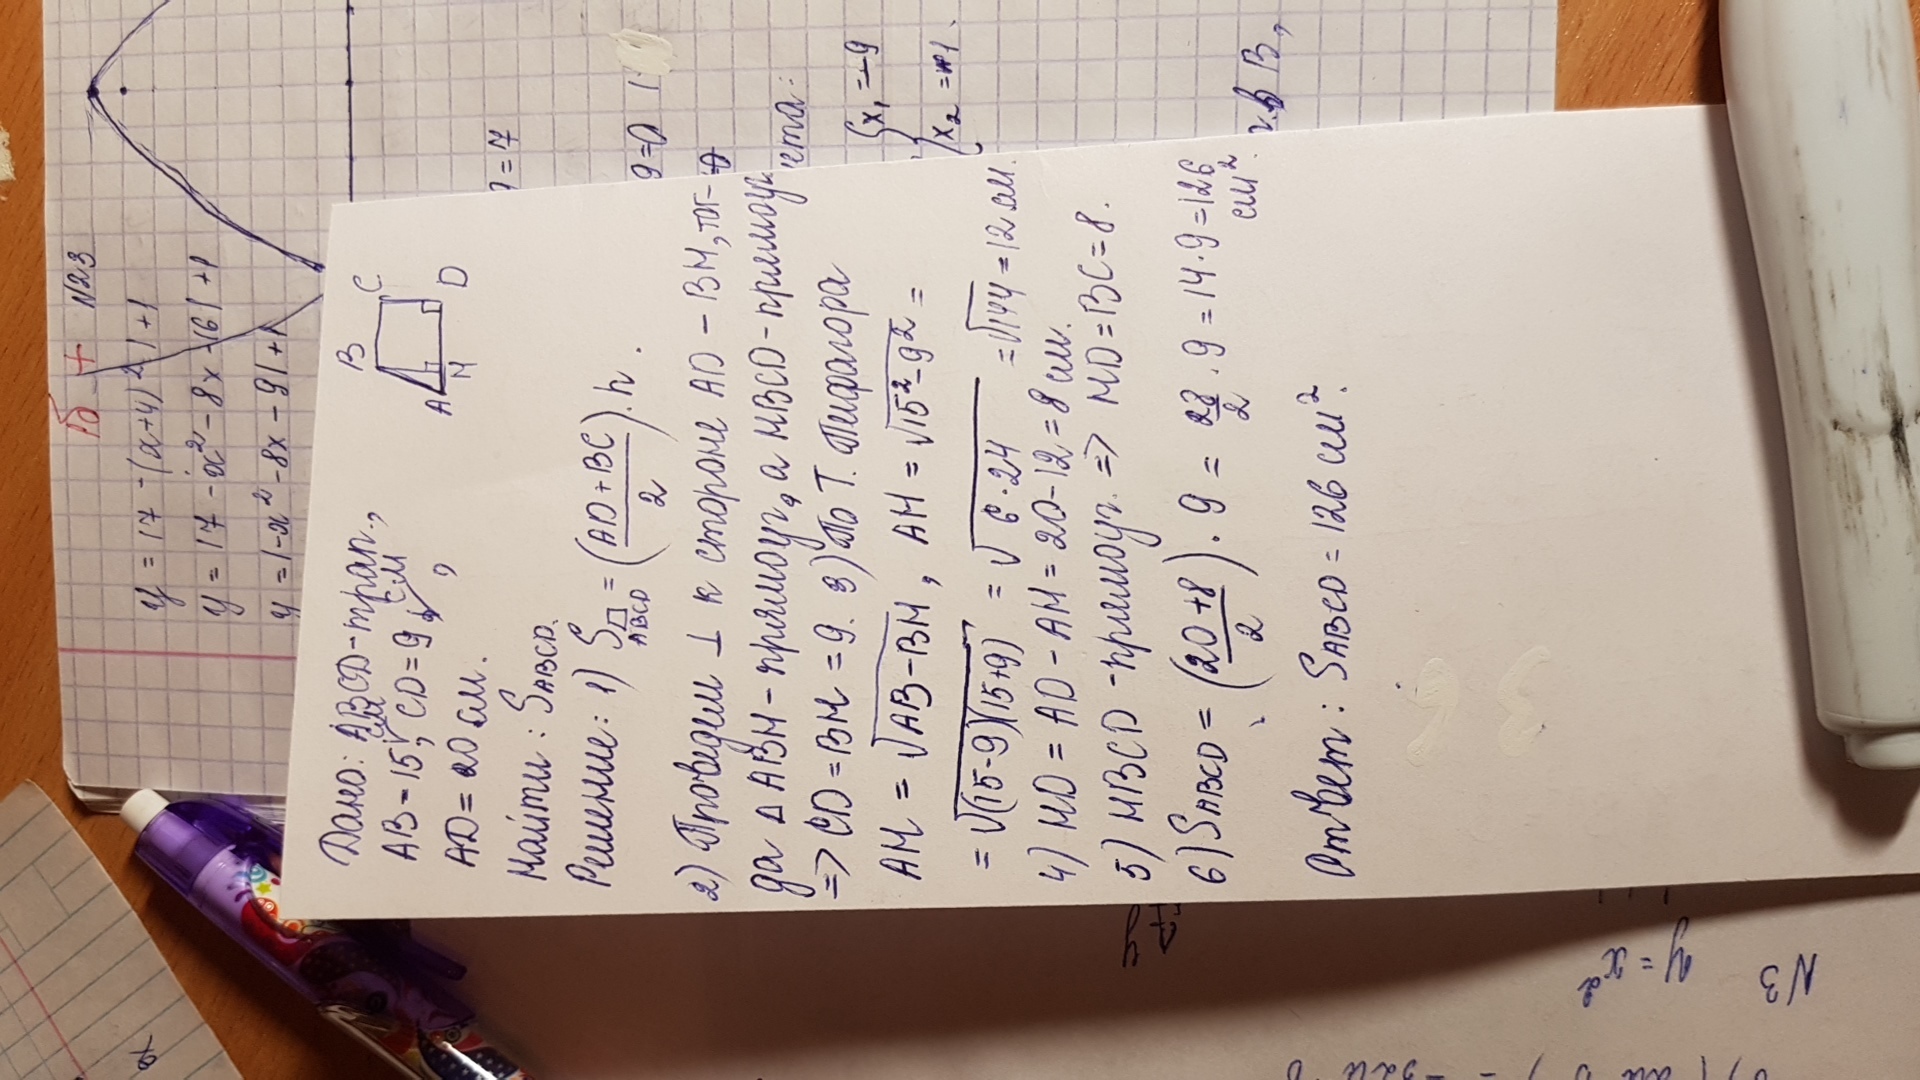 АБ + N23
y = 17 - (x+4)² | + 1
y = 17 - x² - 8x - 16 | + 1
y = 1 - x² - 8x - 9 | + 1
= 7
9 = 0
x₁ = -9
x₂ = 1.
Дано: ABCD - трап.,
AB = 15 см, CD = 9 см,
AD = 20 см.
B C
A M D
Найти: SABCD.
Решение: 1) SABCD = (AD + BC / 2) · h.
2) Проведем ⊥ к стороне AD - BM, тог-
да △ABM - прямоуг, а MBCD - прямоуг
=> CD = BM = 9. 3) По Т. Пифагора
AM = √AB - BM, AM = √15² - 9² =
= √(15-9)(15+9) = √6·24 = √144 = 12 см.
4) MD = AD - AM = 20 - 12 = 8 см.
5) MBCD - прямоуг. => MD = BC = 8.
6) SABCD = (20 + 8 / 2) · 9 = 28/2 · 9 = 14 · 9 = 126 см².
Ответ: SABCD = 126 см².
N3
y = x²